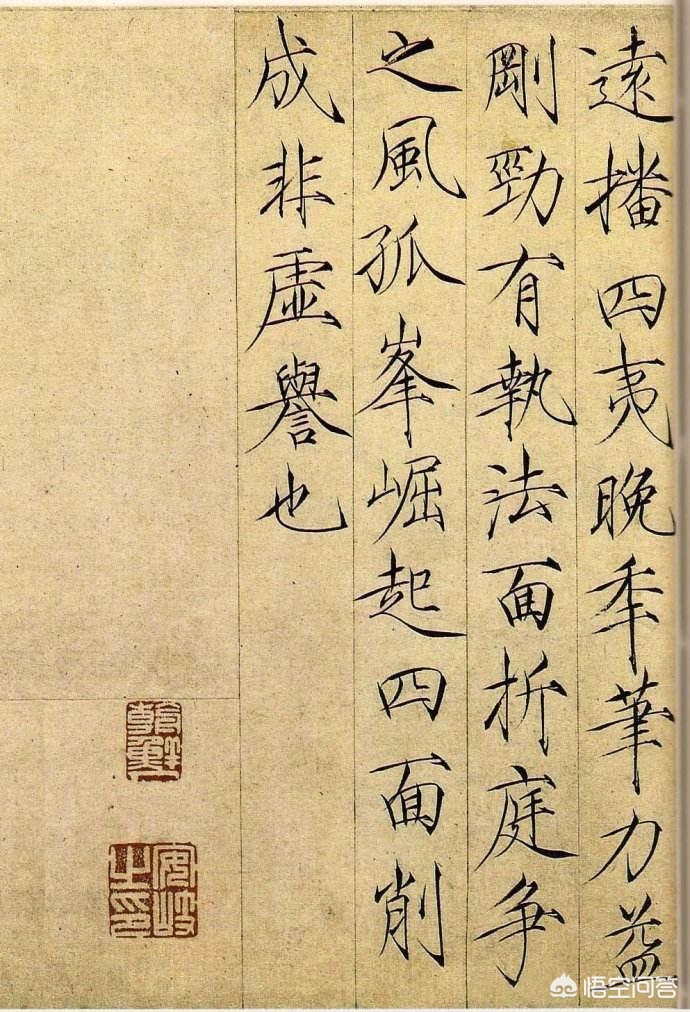 遠播四夷晚年筆力益
剛勁有執法面折庭爭
之風孤峯崛起四面削
成非虛譽也
安岐之印
悟空问答